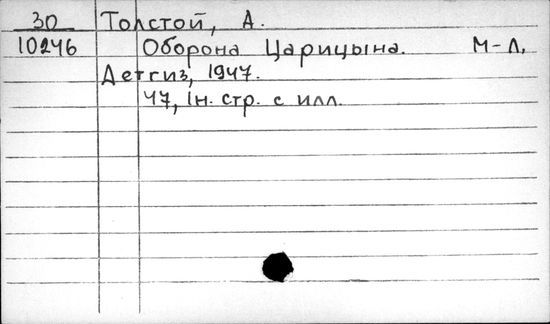 30 Толстой, А.
10246 Оборона Царицына. М-Л,
Детгиз, 1947.
47, 1н. стр. с илл.